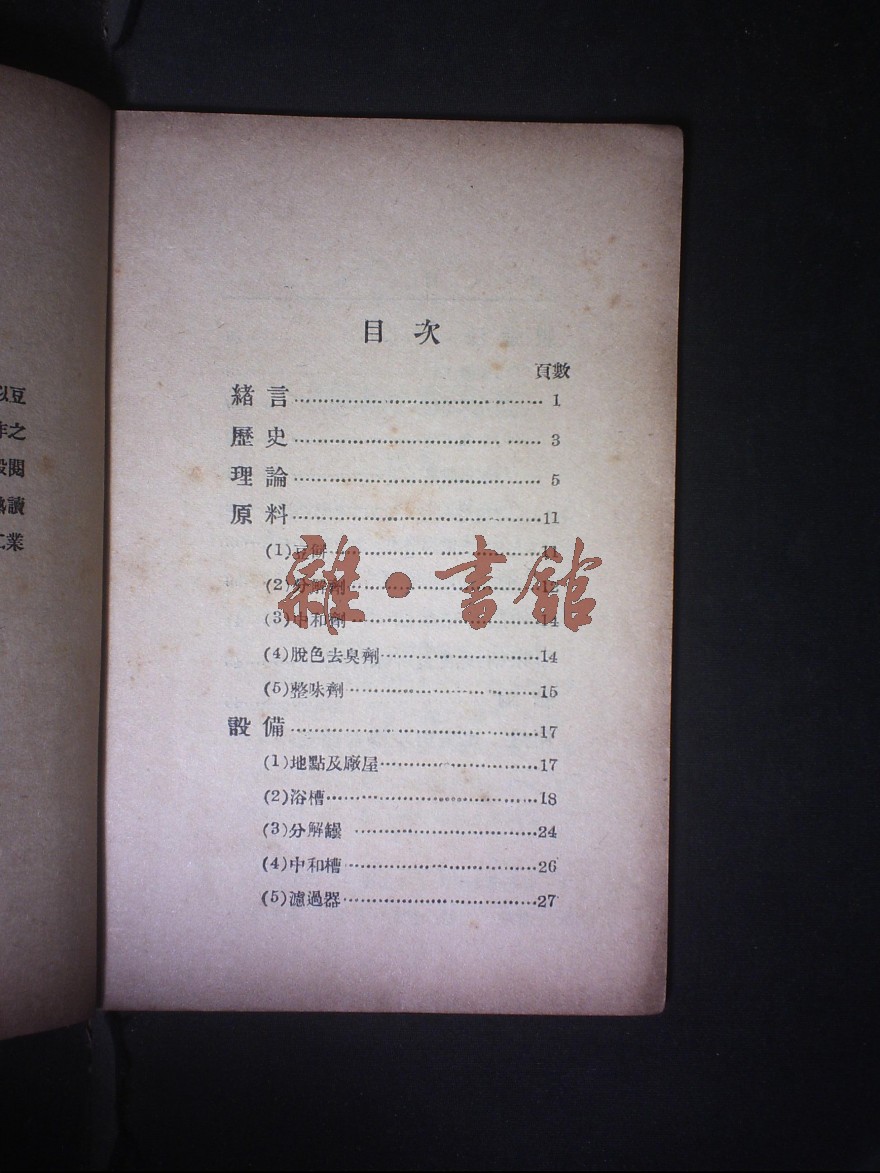 目次
頁數
緒言 1
歷史 3
理論 5
原料 11
(1)豆餅 11
(2)分解劑 12
(3)中和劑 14
(4)脫色去臭劑 14
(5)整味劑 15
設備 17
(1)地點及廠屋 17
(2)浴槽 18
(3)分解罎 24
(4)中和槽 26
(5)濾過器 27
雜·書館
以豆
作之
閱
讀
業